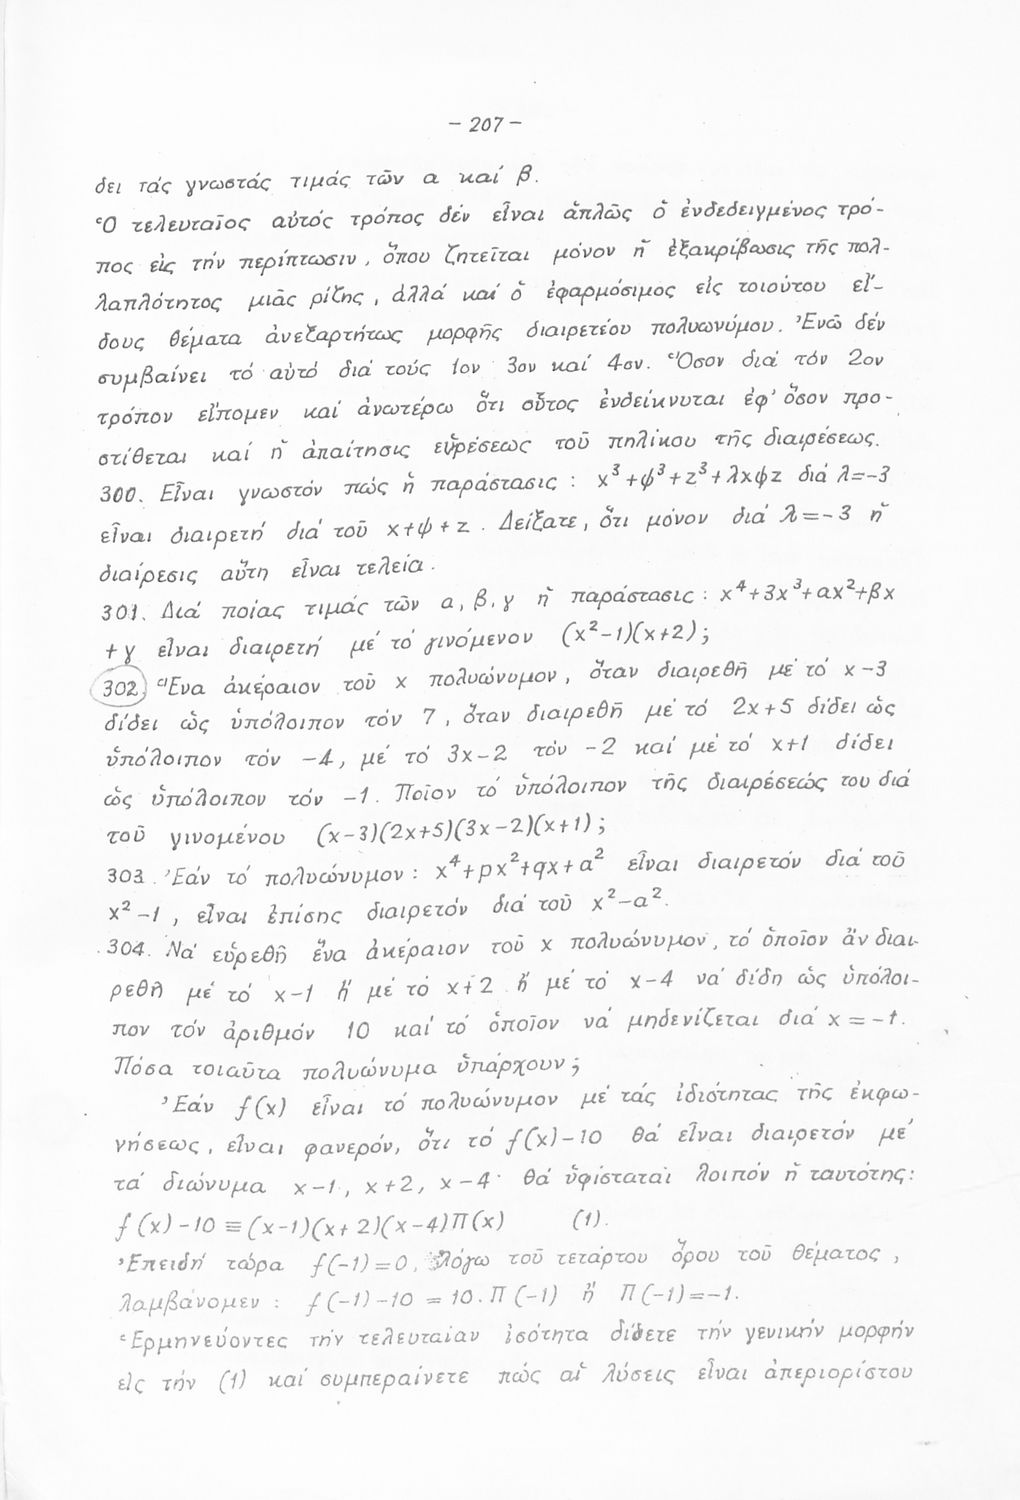 - 207 -
δει τάς γνωστάς τιμάς τῶν α καί β.
Ὁ τελευταῖος αὐτός τρόπος δέν εἶναι ἁπλῶς ὁ ἐνδεδειγμένος τρό-
πος εἰς τήν περίπτωσιν, ὅπου ζητεῖται μόνον ἡ ἐξακρίβωσις τῆς πολ-
λαπλότητος μιᾶς ρίζης, ἀλλά καί ὁ ἐφαρμόσιμος εἰς τοιούτου εἴ-
δους θέματα ἀνεξαρτήτως μορφῆς διαιρετέου πολυωνύμου. Ἐνῶ δέν
συμβαίνει τό αὐτό διά τούς 1ον 3ον καί 4ον. Ὅσον διά τόν 2ον
τρόπον εἴπομεν καί ἀνωτέρω ὅτι οὗτος ἐνδείκνυται ἐφ' ὅσον προ-
στίθεται καί ἡ ἀπαίτησις εὑρέσεως τοῦ πηλίκου τῆς διαιρέσεως.
300. Εἶναι γνωστόν πώς ἡ παράστασις : x³+ψ³+z³+λxψz διά λ=-3
εἶναι διαιρετή διά τοῦ x+ψ+z. Δείξατε, ὅτι μόνον διά λ=-3 ἡ
διαίρεσις αὕτη εἶναι τελεία.
301. Διά ποίας τιμάς τῶν α, β, γ ἡ παράστασις : x⁴+3x³+αx²+βx
+γ εἶναι διαιρετή μέ τό γινόμενον (x²-1)(x+2);
302. Ἕνα ἀκέραιον τοῦ x πολυώνυμον, ὅταν διαιρεθῆ μέ τό x-3
δίδει ὡς ὑπόλοιπον τόν 7, ὅταν διαιρεθῆ μέ τό 2x+5 δίδει ὡς
ὑπόλοιπον τόν -4, μέ τό 3x-2 τόν -2 καί μέ τό x+1 δίδει
ὡς ὑπόλοιπον τόν -1. Ποῖον τό ὑπόλοιπον τῆς διαιρέσεώς του διά
τοῦ γινομένου (x-3)(2x+5)(3x-2)(x+1);
303. Ἐάν τό πολυώνυμον : x⁴+px²+qx+α² εἶναι διαιρετόν διά τοῦ
x²-1, εἶναι ἐπίσης διαιρετόν διά τοῦ x²-α².
304. Νά εὑρεθῆ ἕνα ἀκέραιον τοῦ x πολυώνυμον, τό ὁποῖον ἄν διαι-
ρεθῆ μέ τό x-1 ἤ μέ τό x+2 ἤ μέ τό x-4 νά δίδη ὡς ὑπόλοι-
πον τόν ἀριθμόν 10 καί τό ὁποῖον νά μηδενίζεται διά x=-1.
Πόσα τοιαῦτα πολυώνυμα ὑπάρχουν;
Ἐάν f(x) εἶναι τό πολυώνυμον μέ τάς ἰδιότητας τῆς ἐκφω-
νήσεως, εἶναι φανερόν, ὅτι τό f(x)-10 θά εἶναι διαιρετόν μέ
τά διώνυμα x-1, x+2, x-4· θά ὑφίσταται λοιπόν ἡ ταυτότης:
f(x)-10≡(x-1)(x+2)(x-4)Π(x) (1).
Ἐπειδή τώρα f(-1)=0, λόγω τοῦ τετάρτου ὅρου τοῦ θέματος,
λαμβάνομεν : f(-1)-10=10.Π(-1) ἤ Π(-1)=-1.
Ἑρμηνεύοντες τήν τελευταίαν ἰσότητα δίδετε τήν γενικήν μορφήν
εἰς τήν (1) καί συμπεραίνετε πώς αἱ λύσεις εἶναι ἀπεριορίστου